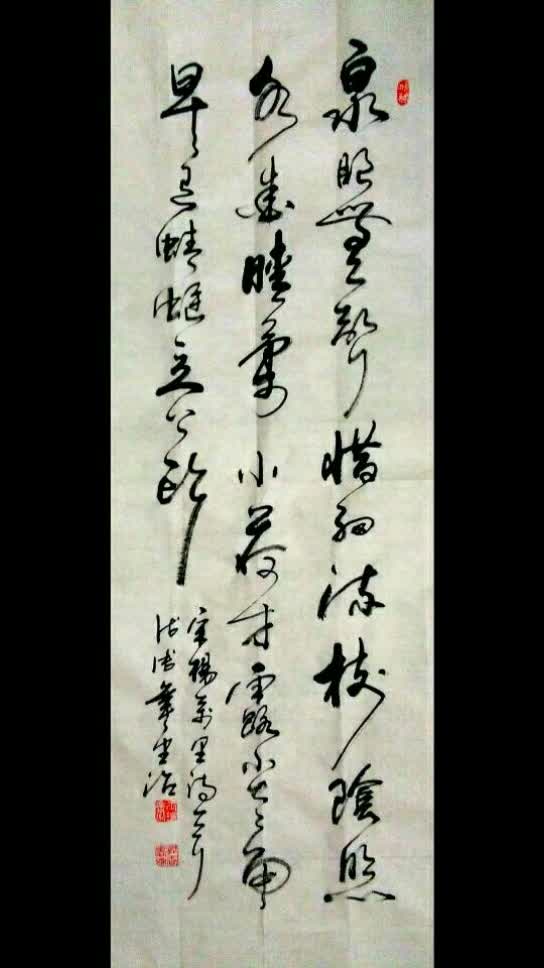 泉眼無聲惜細流樹陰照
水愛晴柔小荷才露尖尖角
早有蜻蜓立上頭
宋楊萬里詩